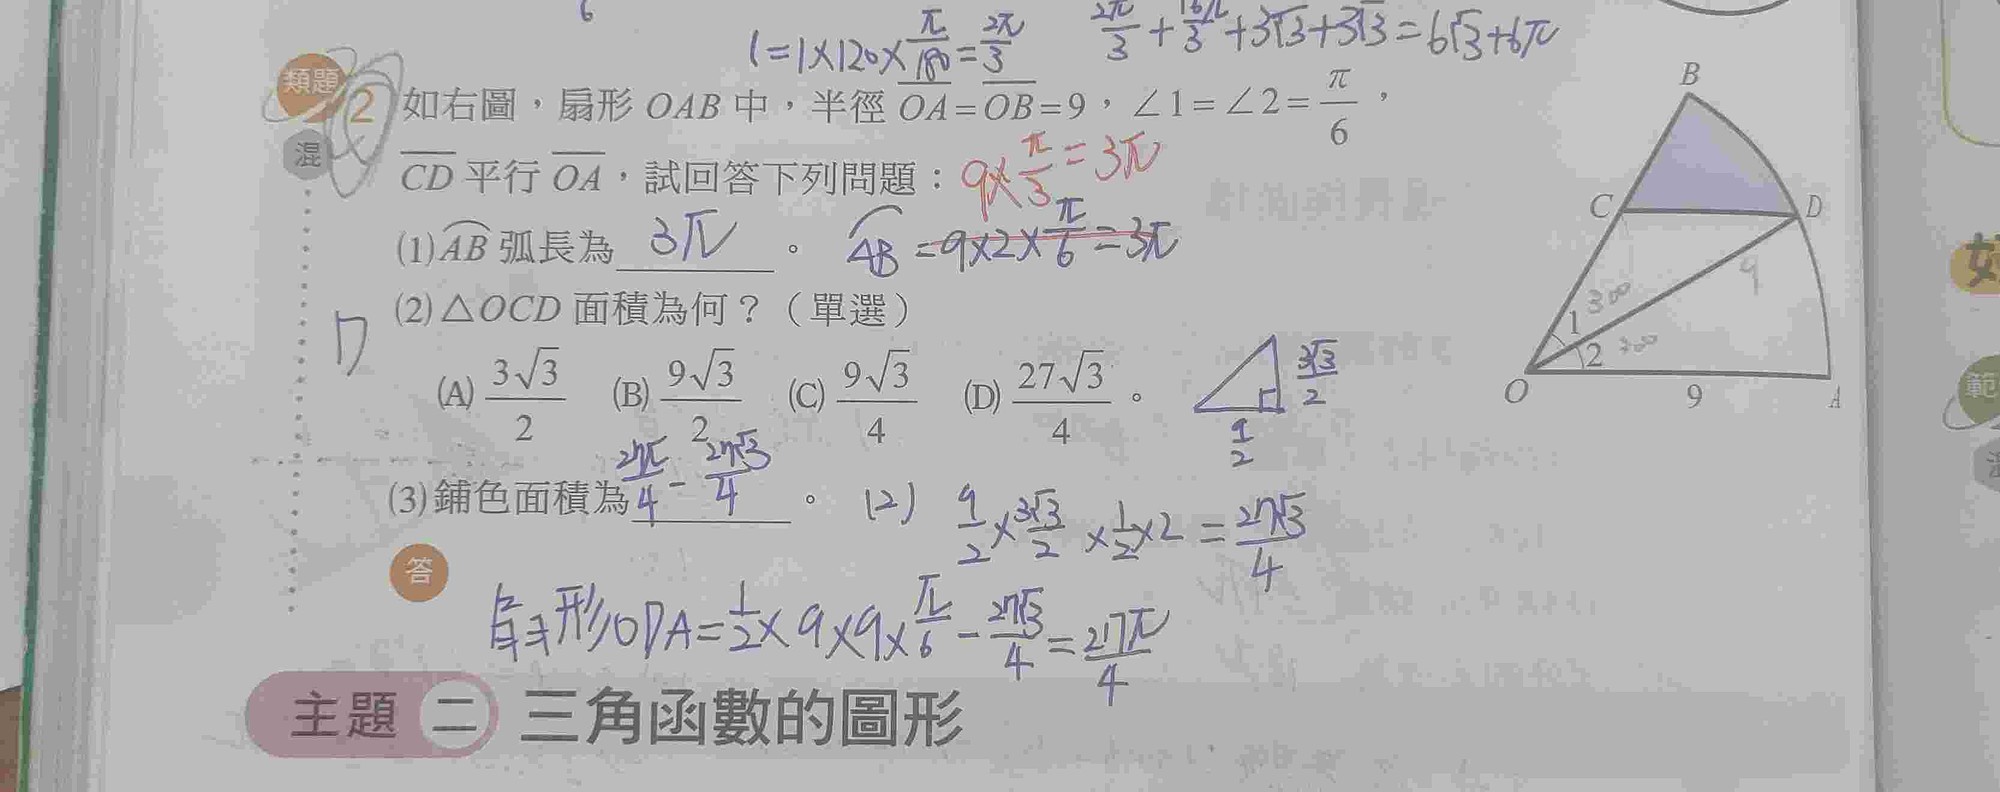 6
l=1×120×π/180=2π/3
2π/3+16π/3+3√3+3√3=6√3+6π
類題2 如右圖，扇形 OAB 中，半徑 \overline{OA}=\overline{OB}=9，∠1=∠2=π/6，
混
\overline{CD} 平行 \overline{OA}，試回答下列問題：
9×π/3=3π
(1) \overset{\frown}{AB} 弧長為 3π 。
\overset{\frown}{AB}=9×2×π/6=3π
(2) △OCD 面積為何？（單選）
D
(A) 3√3/2 (B) 9√3/2 (C) 9√3/4 (D) 27√3/4 。
3√3/2
9/2
(3) 鋪色面積為 27π/4-27√3/4 。
(2) 9/2×3√3/2×1/2×2=27√3/4
答
扇形ODA=1/2×9×9×π/6-27√3/4=27π/4
主題二 三角函數的圖形
B
C
D
30°
1
9
2
30°
O
9
A
範